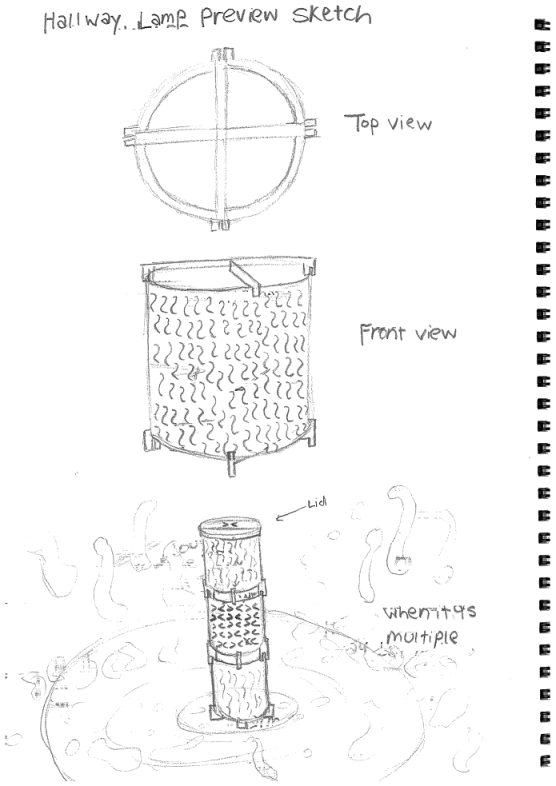 Hallway Lamp preview sketch
Top view
Front view
Lid
when it is
multiple